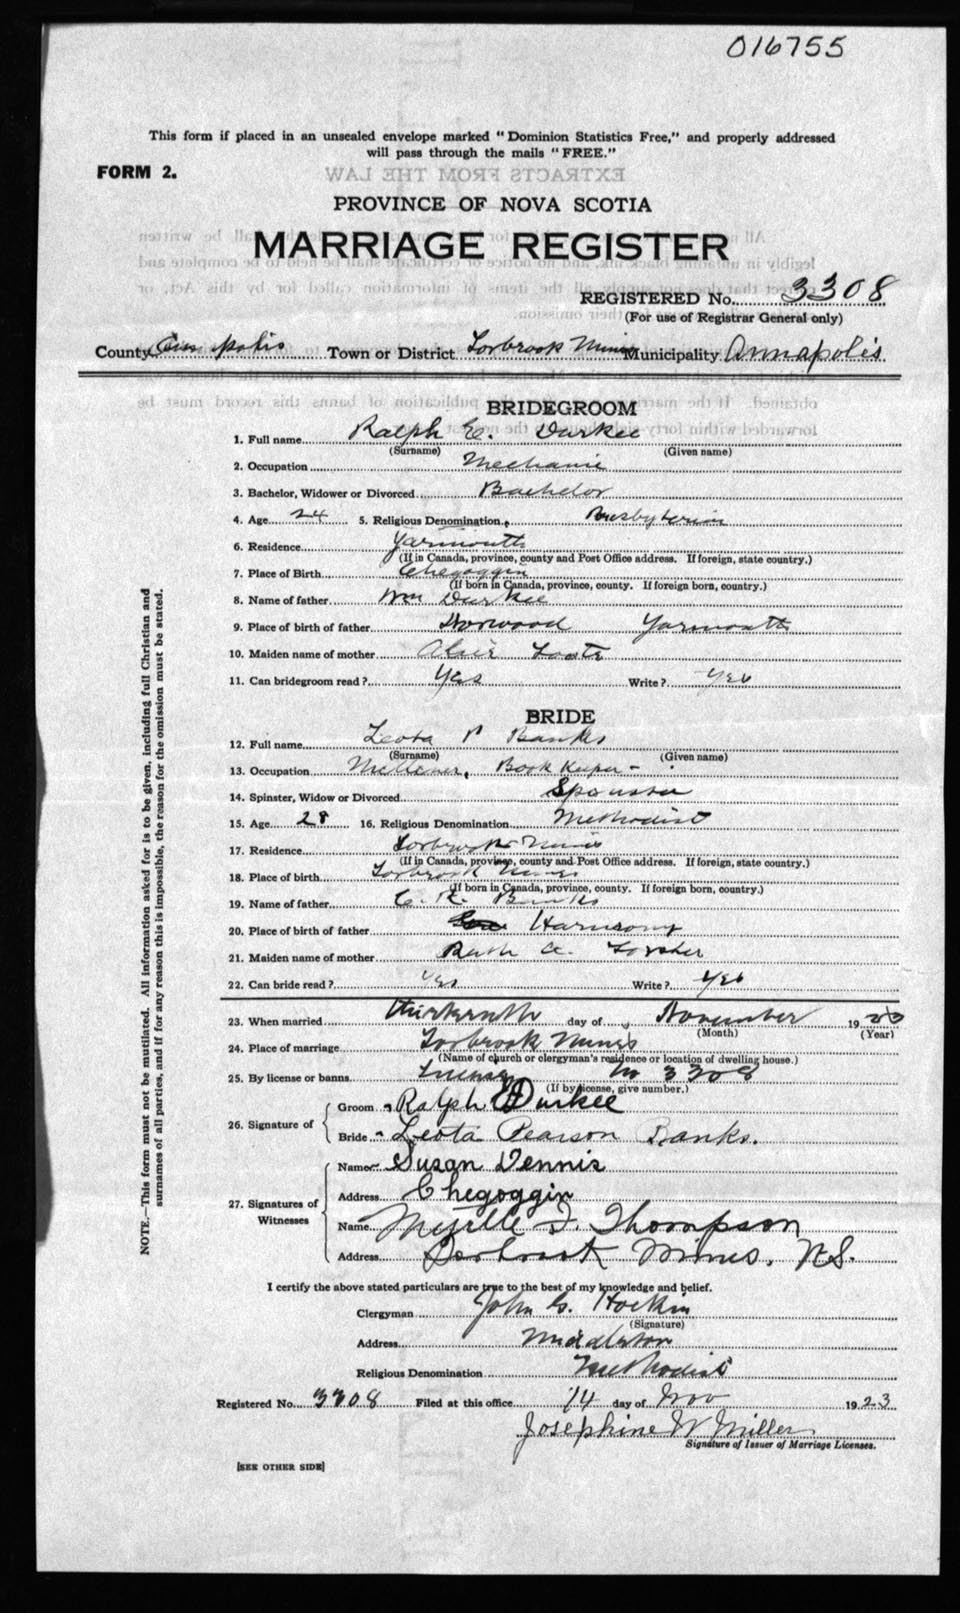 016755
This form if placed in an unsealed envelope marked "Dominion Statistics Free," and properly addressed
will pass through the mails "FREE."
FORM 2.
EXTRACTS FROM THE LAW
PROVINCE OF NOVA SCOTIA
MARRIAGE REGISTER
REGISTERED No. 3308
(For use of Registrar General only)
County Annapolis Town or District Torbrook Mines Municipality Annapolis
BRIDEGROOM
1. Full name Ralph E. Durkee
(Surname) (Given name)
2. Occupation Mechanic
3. Bachelor, Widower or Divorced Bachelor
4. Age 24 5. Religious Denomination Presbyterian
6. Residence Yarmouth
(If in Canada, province, county and Post Office address. If foreign, state country.)
7. Place of Birth Chegoggin
(If born in Canada, province, county. If foreign born, country.)
8. Name of father Wm Durkee
9. Place of birth of father Yarmouth
10. Maiden name of mother
11. Can bridegroom read? Yes Write? Yes
BRIDE
12. Full name Leota P Banks
(Surname) (Given name)
13. Occupation Book Keeper -
14. Spinster, Widow or Divorced Spinster
15. Age 28 16. Religious Denomination Methodist
17. Residence Torbrook Mines
(If in Canada, province, county and Post Office address. If foreign, state country.)
18. Place of birth Torbrook Mines
(If born in Canada, province, county. If foreign born, country.)
19. Name of father C. R. Banks
20. Place of birth of father
21. Maiden name of mother
22. Can bride read? Yes Write? Yes
23. When married thirteenth day of November 19
(Month) (Year)
24. Place of marriage Torbrook Mines
(Name of church or clergyman's residence or location of dwelling house.)
25. By license or banns License No 3308
(If by license, give number.)
26. Signature of
Groom Ralph E Durkee
Bride Leota Pearson Banks.
27. Signatures of Witnesses
Name Susan Dennis
Address Chegoggin
Name Myrtle Thompson
Address Torbrook Mines, N.S.
I certify the above stated particulars are true to the best of my knowledge and belief.
Clergyman John G. Hockin
(Signature)
Address Middleton
Religious Denomination Methodist
Registered No. 3308 Filed at this office 14 day of Nov 1923
Josephine W Miller
Signature of Issuer of Marriage Licenses.
[SEE OTHER SIDE]
NOTE.—This form must not be mutilated. All information asked for is to be given, including full Christian and
surnames of all parties, and if for any reason this is impossible, the reason for the omission must be stated.